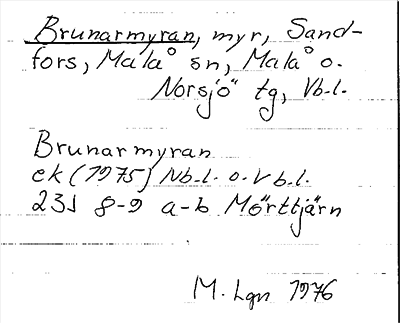 Brunarmyran, myr, Sand-
fors, Malå sn, Malå o.
Norsjö tg, Vb.l.
Brunarmyran
ek (1975) Nb.l. o. Vb.l.
23J 8-9 a-b Mörttjärn
M. Lgn 1976